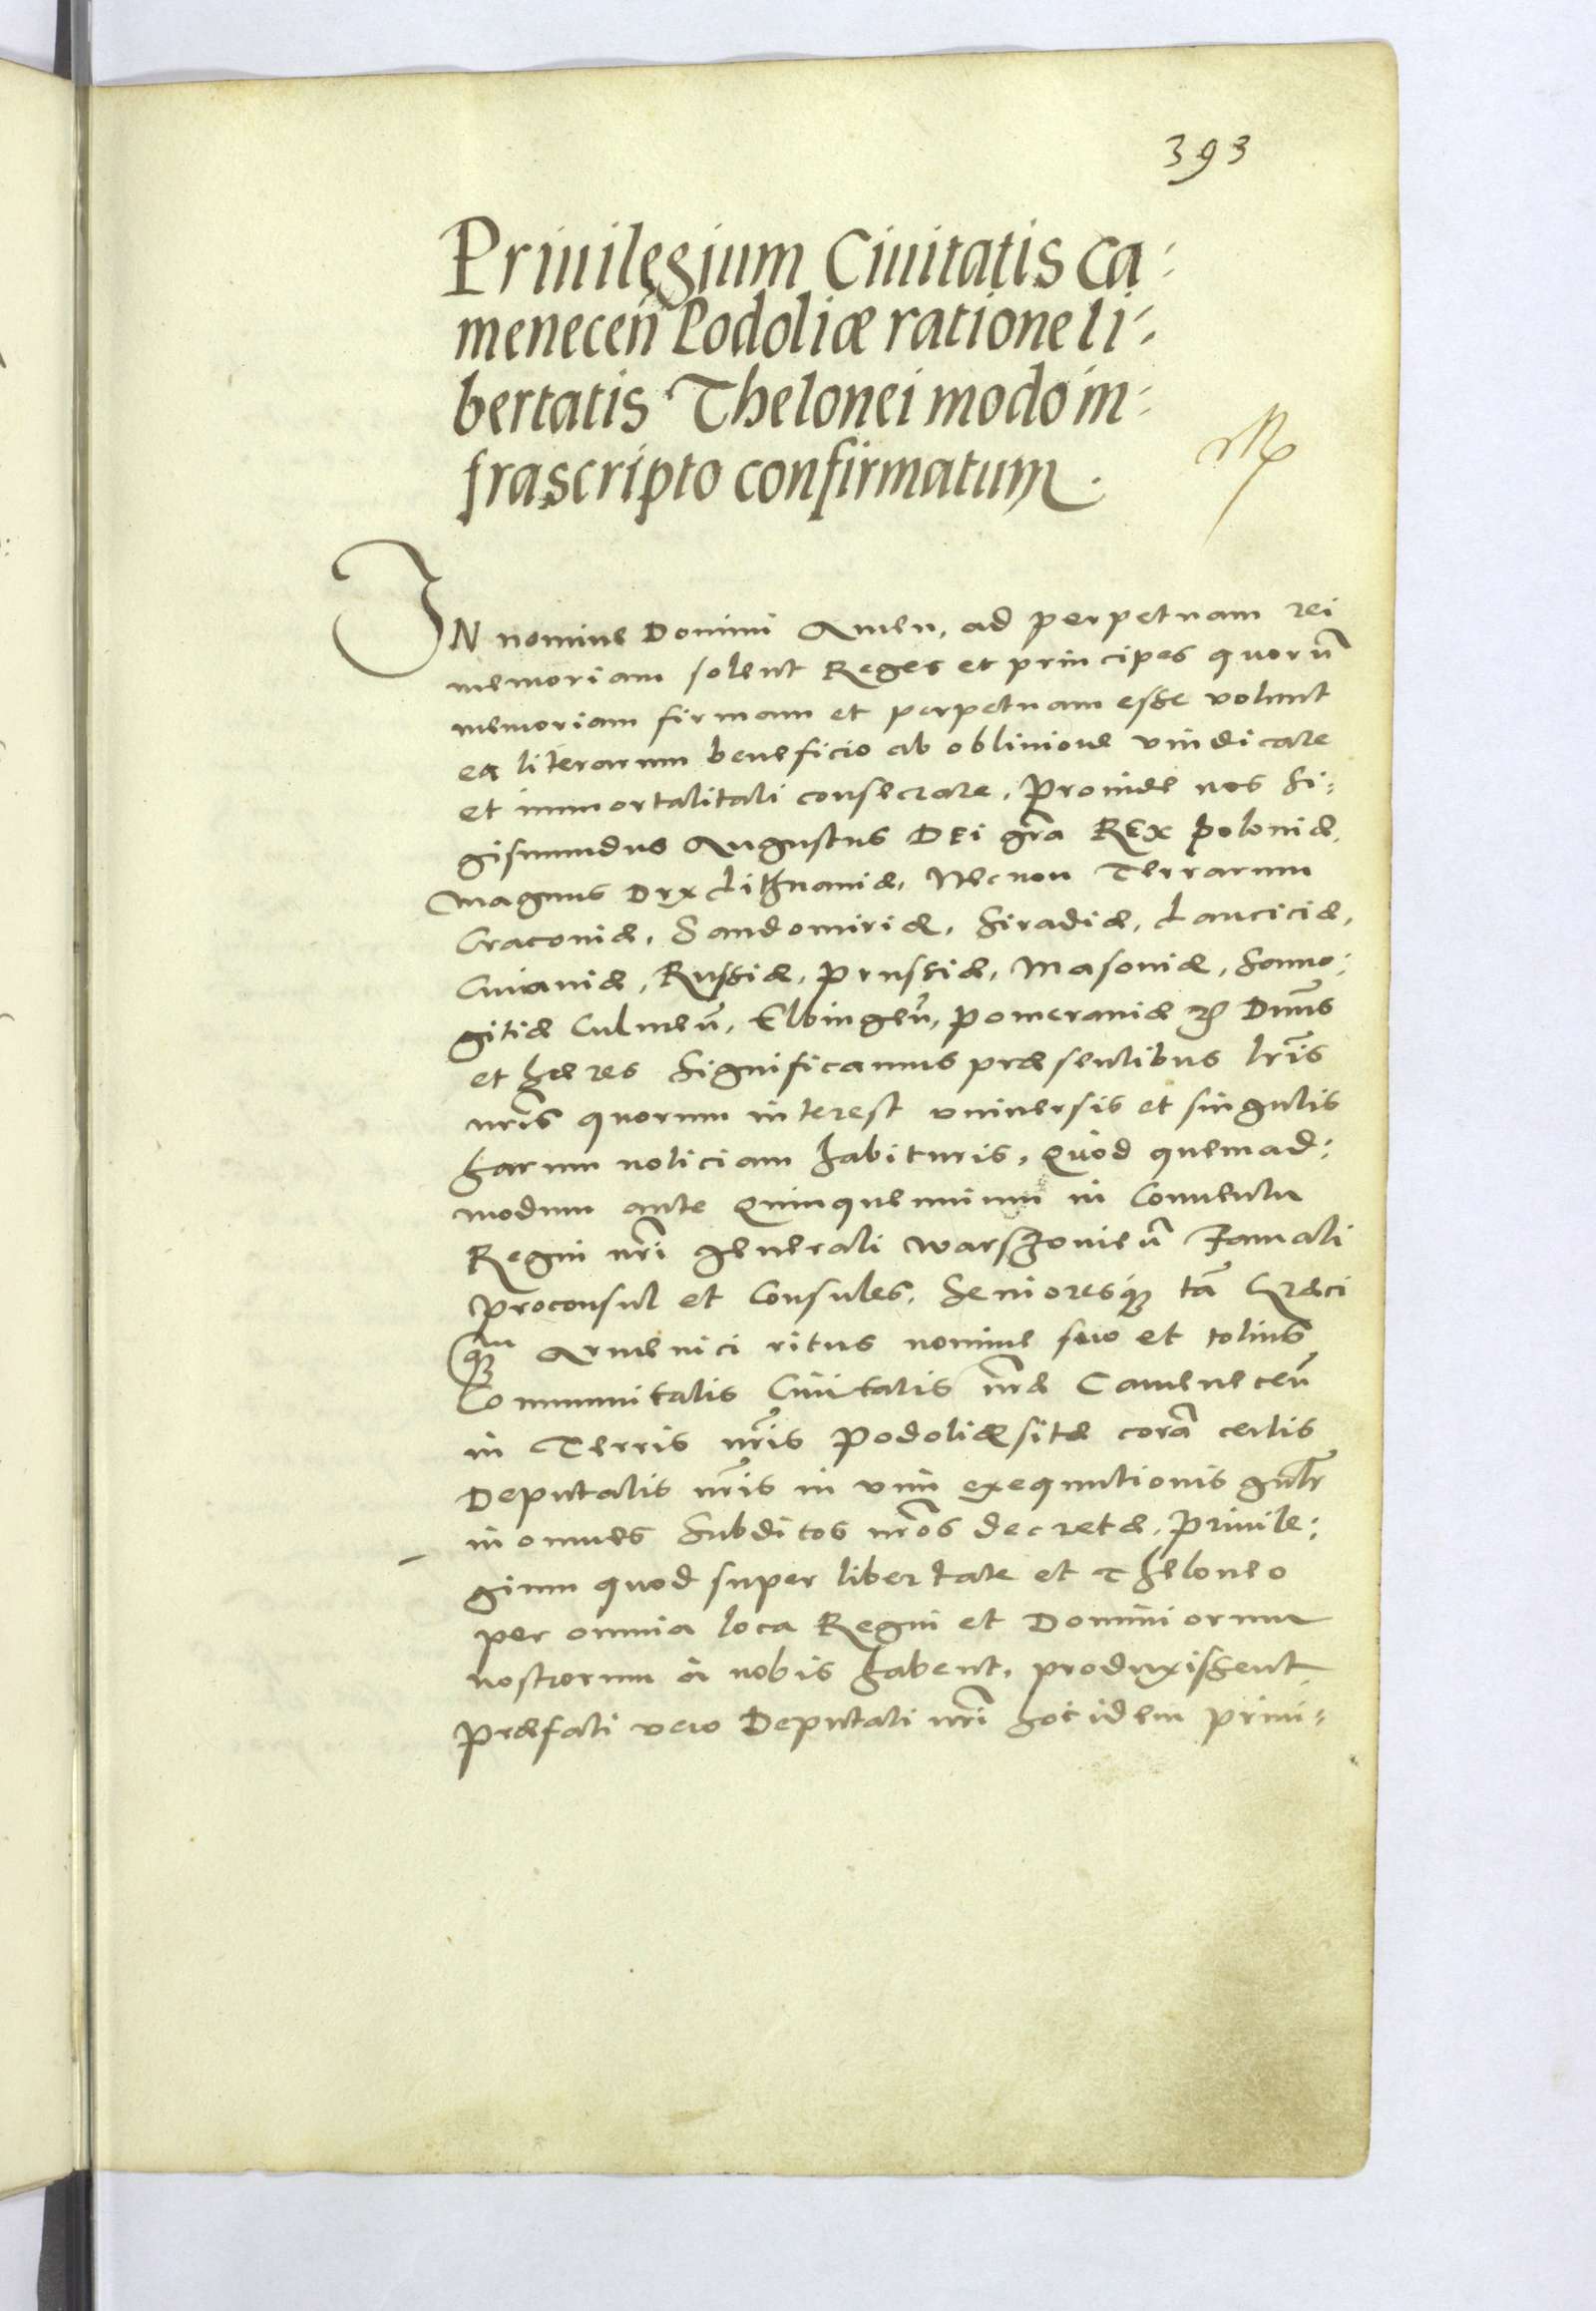 393
Priuilegium Ciuitatis Ca-
menecen̄ Podoliæ ratione li-
bertatis Thelonei modo in-
frascripto confirmatum.
IN nomine Domini Amen, ad perpetuam rei
memoriam solent Reges et principes quorū
memoriam firmam et perpetuam esse volunt
ea literarum beneficio ab obliuione vindicare
et immortalitati consecrare. Proinde nos Si-
gismundus Augustus DEi gr̄a REx Poloniæ,
Magnus Dux Lithuaniæ, Necnon Terrarum
Cracouiæ, Sandomiriæ, Siradiæ, Lanciciæ,
Cuiauiæ, Russiæ, Prussiæ, Masouiæ, Samo-
gitiæ Culmen̄, Elbingen̄, Pomeraniæ etc Dn̄us
et hæres Significamus præsentibus lr̄is
nr̄is quorum interest vniuersis et singulis
harum noticiam habituris, Quod quemad-
modum ante Quinquennium in Conuentu
Regni nr̄i generali Warszouien̄ Famati
Proconsul et Consules, Senioresq́ue tā Græci
quam Armenici ritus nomine suo et totius
Communitatis Ciuitatis nr̄æ Camenecen̄
in Terris nr̄is Podoliæ sitæ corā certis
Deputatis nr̄is in vim exequutionis gn̄lr̄
in omnes Subditos nr̄os decretæ, Priuile-
gium quod super libertate et Theloneo
per omnia loca Regni et Dominiorum
nostrorum à nobis habent, produxissent
Præfati vero Deputati nr̄i hoc idem priui-